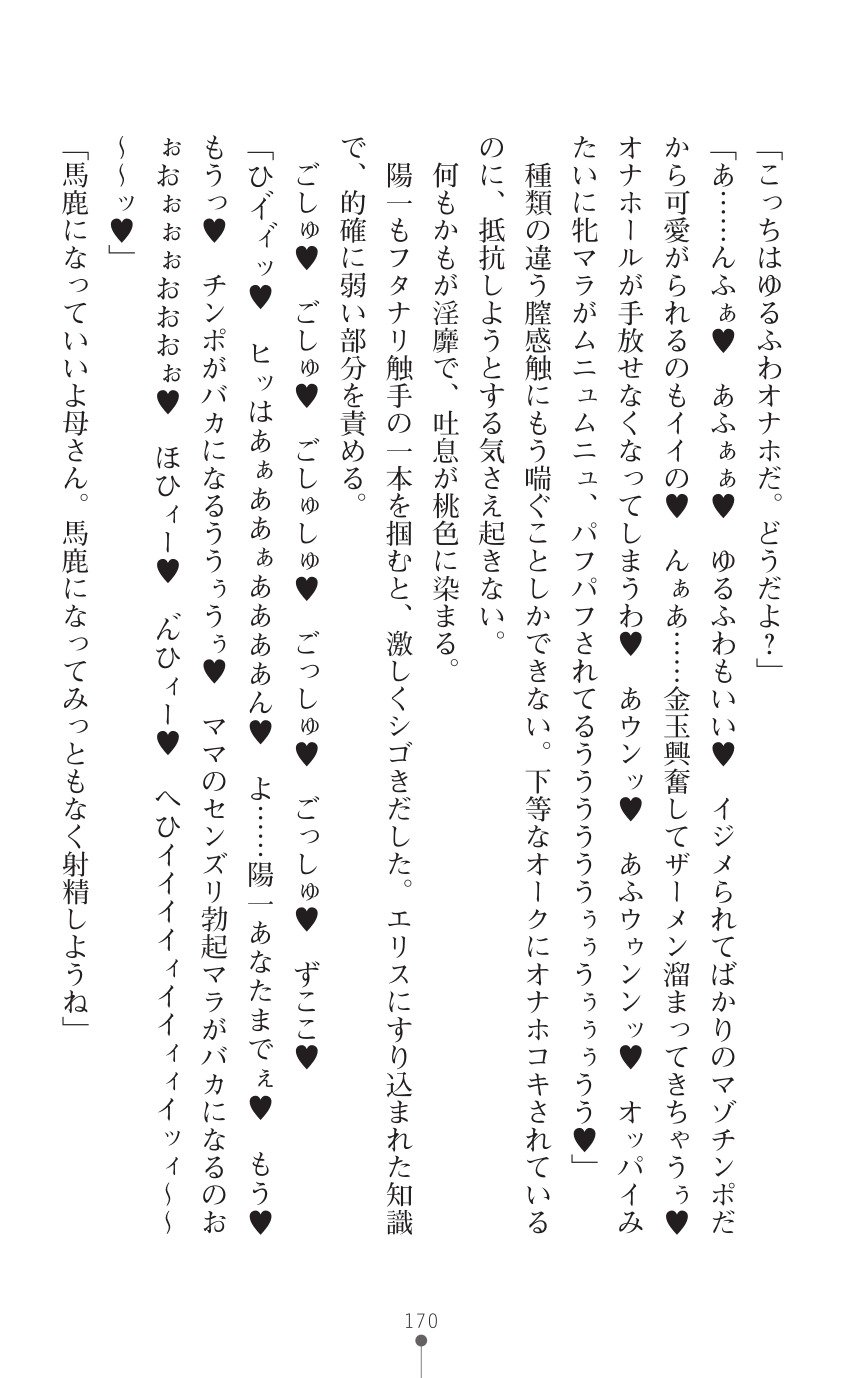 「こっちはゆるふわオナホだ。どうだよ？」
「あ……んふぁ♥　あふぁぁ♥　ゆるふわもいい♥　イジメられてばかりのマゾチンポだ
から可愛がられるのもイイの♥　んぁあ……金玉興奮してザーメン溜まってきちゃうぅ♥
オナホールが手放せなくなってしまうわ♥　あウンッ♥　あふウゥンンッ♥　オッパイみ
たいに牝マラがムニュムニュ、パフパフされてるうううううううぅぅうぅぅぅうう♥」
　種類の違う膣感触にもう喘ぐことしかできない。下等なオークにオナホコキされている
のに、抵抗しようとする気さえ起きない。
　何もかもが淫靡で、吐息が桃色に染まる。
　陽一もフタナリ触手の一本を掴むと、激しくシゴきだした。エリスにすり込まれた知識
で、的確に弱い部分を責める。
　ごしゅ♥　ごしゅ♥　ごしゅしゅ♥　ごっしゅ♥　ごっしゅ♥　ずここ♥
「ひイ゛ィ゛ッ♥　ヒッはあぁああぁああああん♥　よ……陽一あなたまでぇ♥　もう♥
もうっ♥　チンポがバカになるううぅうぅ♥　ママのセンズリ勃起マラがバカになるのお
ぉおぉぉぉおおおぉ♥　ほひィー♥　ん゛ひィー♥　へひイイイイィイイィィイッィ～～
～～ッ♥」
「馬鹿になっていいよ母さん。馬鹿になってみっともなく射精しようね」
170